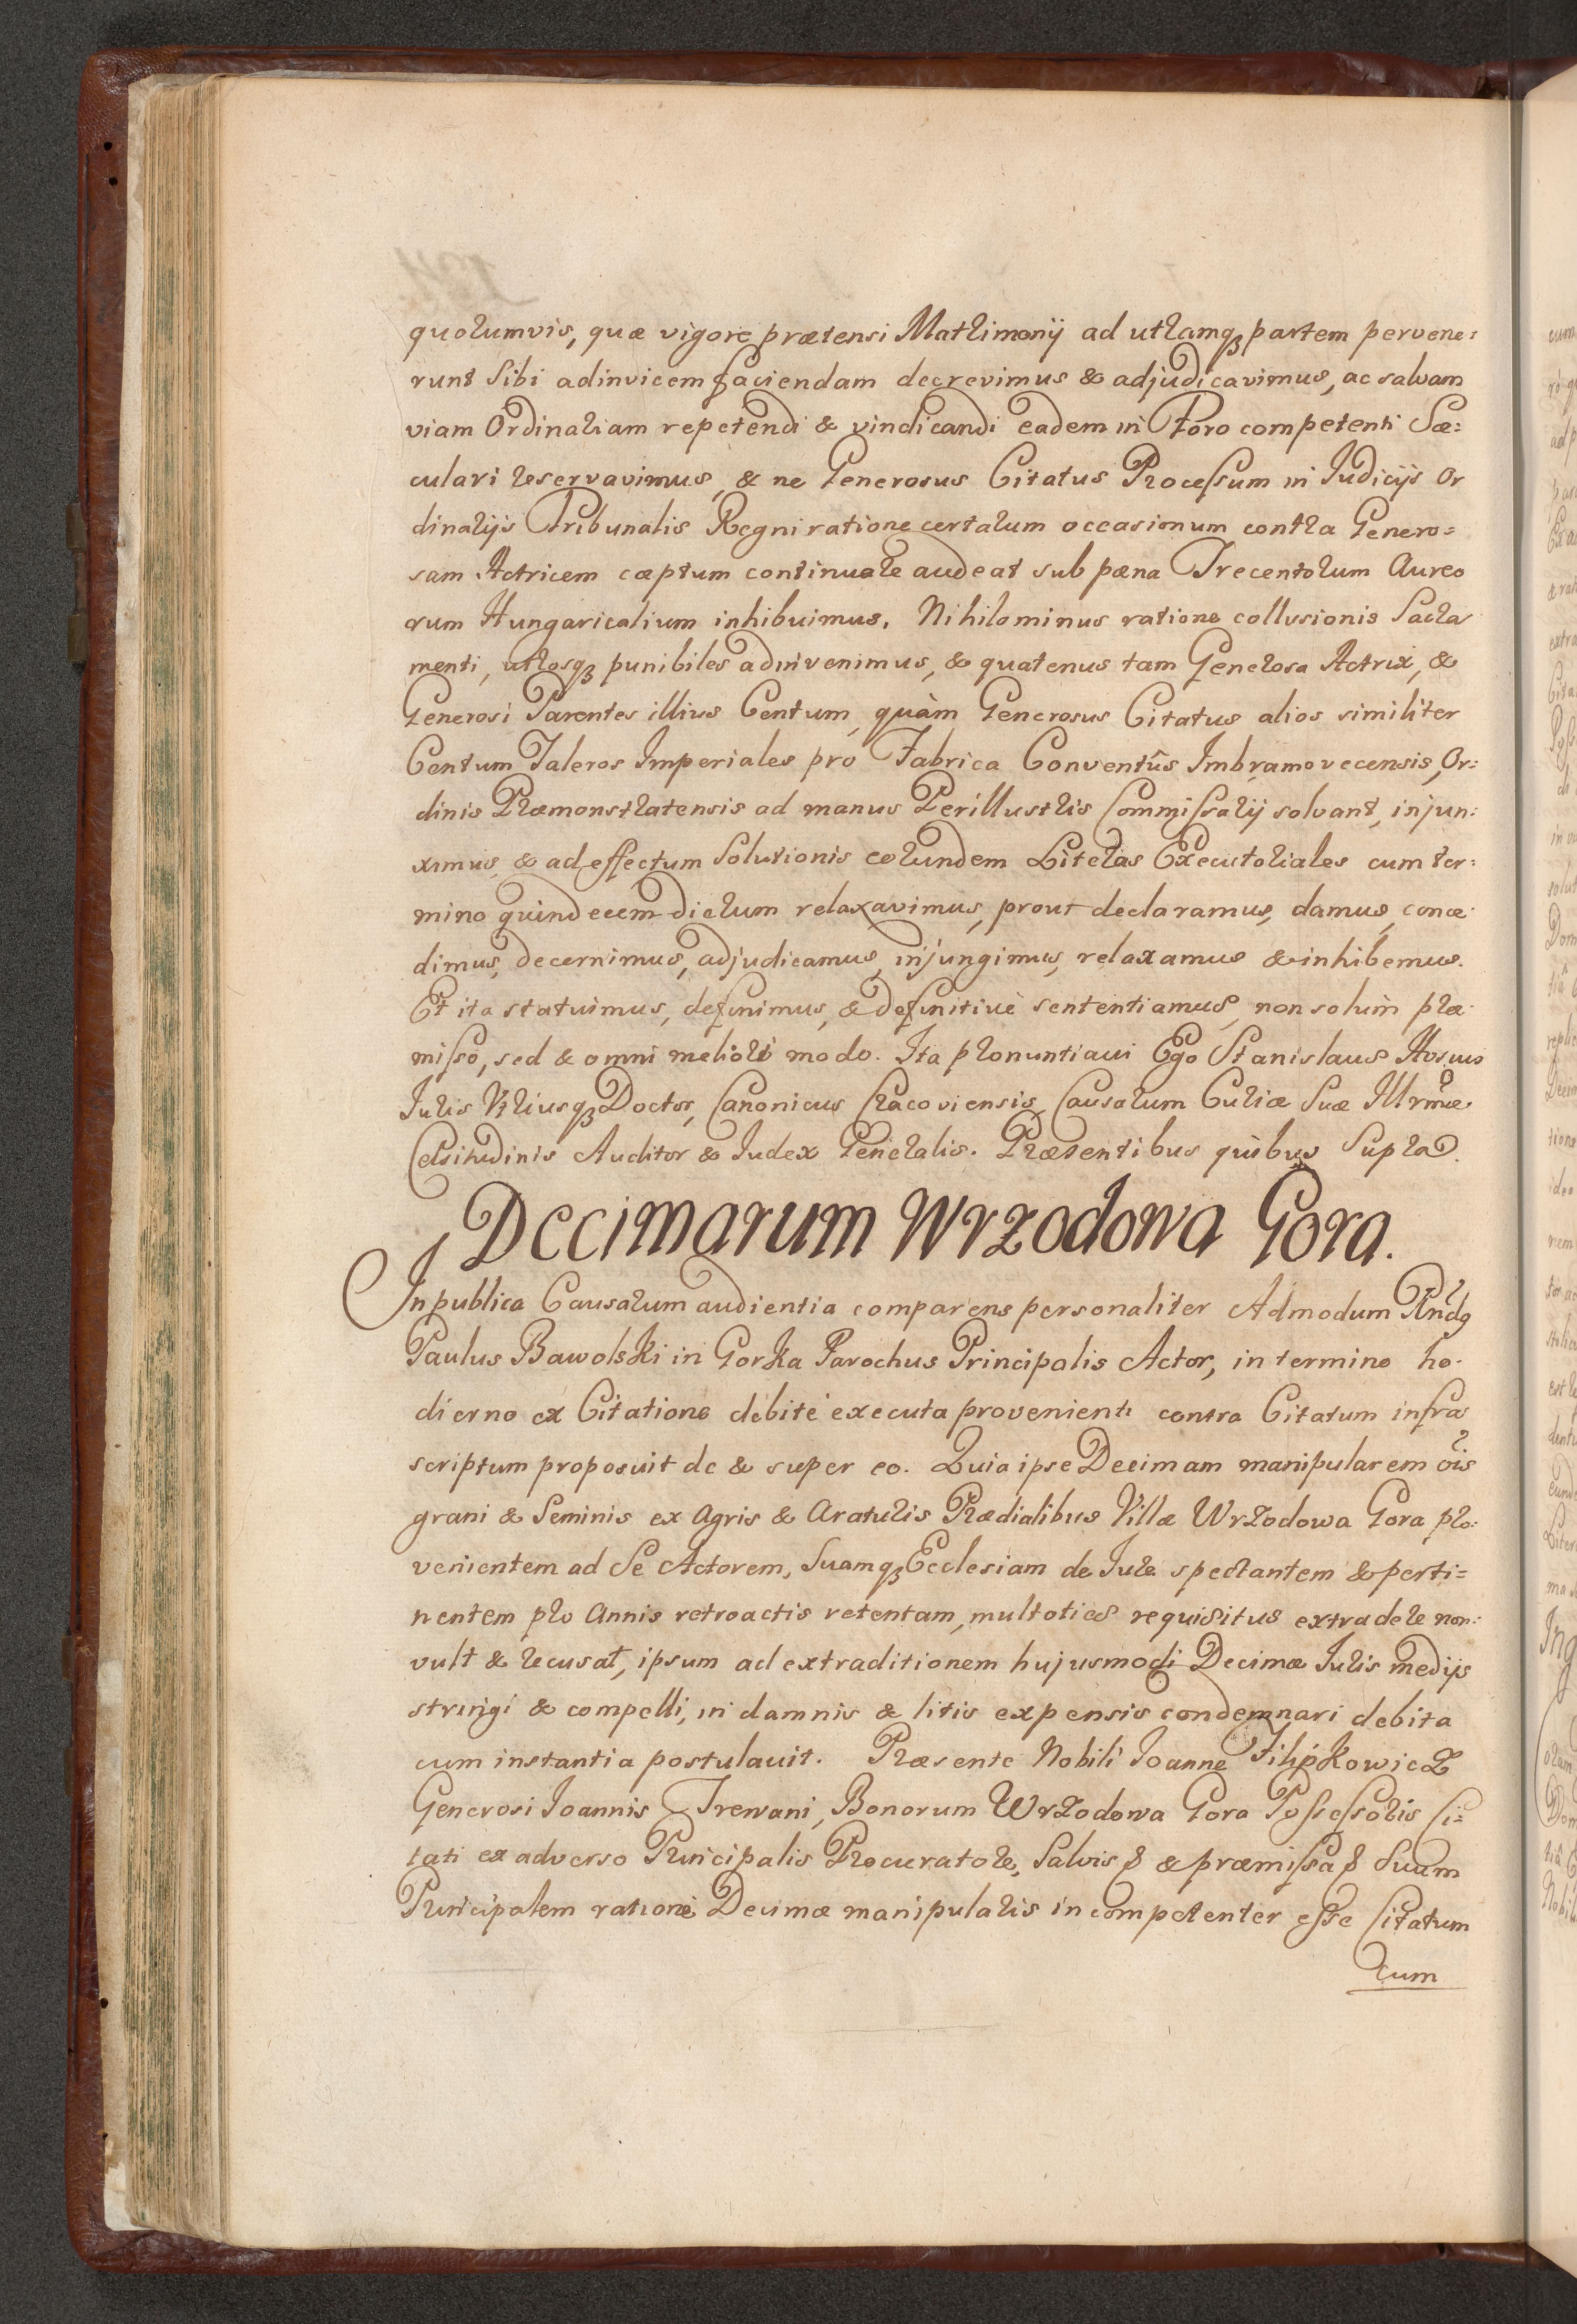 quorumvis, quæ vigore prætensi Matrimonij ad utramqꝫ partem pervene:
runt Sibi adinvicem faciendam decrevimus & adjudicavimus, ac salvam
viam Ordinariam repetendi & vindicandi eadem in Foro competenti Sæ:
culari reservavimus, & ne Generosus Citatus Processum in Judicijs Or
dinarijs Tribunalis Regni ratione certarum occasionum contra Genero=
sam Actricem cæptum continuare audeat sub pæna Trecentorum Aureo
rum Hungaricalium inhibuimus. Nihilominus ratione collusionis Sacra
menti, utrosqꝫ punibiles adinvenimus, & quatenus tam Generosa Actrix, &
Generosi Parentes illius Centum, quàm Generosus Citatus alios similiter
Centum Taleros Imperiales pro Fabrica Conventûs Imbramovecensis, Or:
dinis Præmonstratensis ad manus Perillustris Commissarij solvant, injun:
ximus, & ad effectum Solutionis eorundem Literas Executoriales cum ter:
mino quindecem dierum relaxavimus, prout declaramus, damus, conce
dimus, decernimus, adjudicamus, injungimus, relaxamus & inhibemus.
Et ita statuimus, definimus, & definitivè sententiamus, non solùm præ
misso, sed & omni meliori modo. Ita pronuntiavi Ego Stanislaus Hosius
Juris Vtriusqꝫ Doctor, Canonicus Cracoviensis, Causarum Curiæ Suæ Illrmæ
Celsitudinis Auditor & Judex Generalis. Præsentibus quibus Supra.
Decimarum Wrzodowa Gora.
In publica Causarum audientia comparens personaliter Admodum Rndꝰ
Paulus Bawolski in Gorka Parochus Principalis Actor, in termino ho:
dierno ex Citatione debitè executa provenienti contra Citatum infra
scriptum proposuit de & super eo. Quia ipse Decimam manipularem oĩs
grani & Seminis ex Agris & Araturis Prædialibus Villæ Wrzodowa Gora pro:
venientem ad Se Actorem, Suamqꝫ Ecclesiam de Jure spectantem & perti=
nentem pro Annis retroactis retentam, multoties requisitus extradere non:
vult & recusat, ipsum ad extraditionem hujusmodi Decimæ Juris medijs
stringi & compelli, in damnis & litis expensis condemnari debita
cum instantia postulavit. Præsente Nobili Joanne Filipkowicz
Generosi Joannis Trewani, Bonorum Wrzodowa Gora Possessoris Ci=
tati ex adverso Principalis Procuratore, Salvis & præmissa Suum
Principalem ratione Decimæ manipularis incompetenter esse Citatum
cum